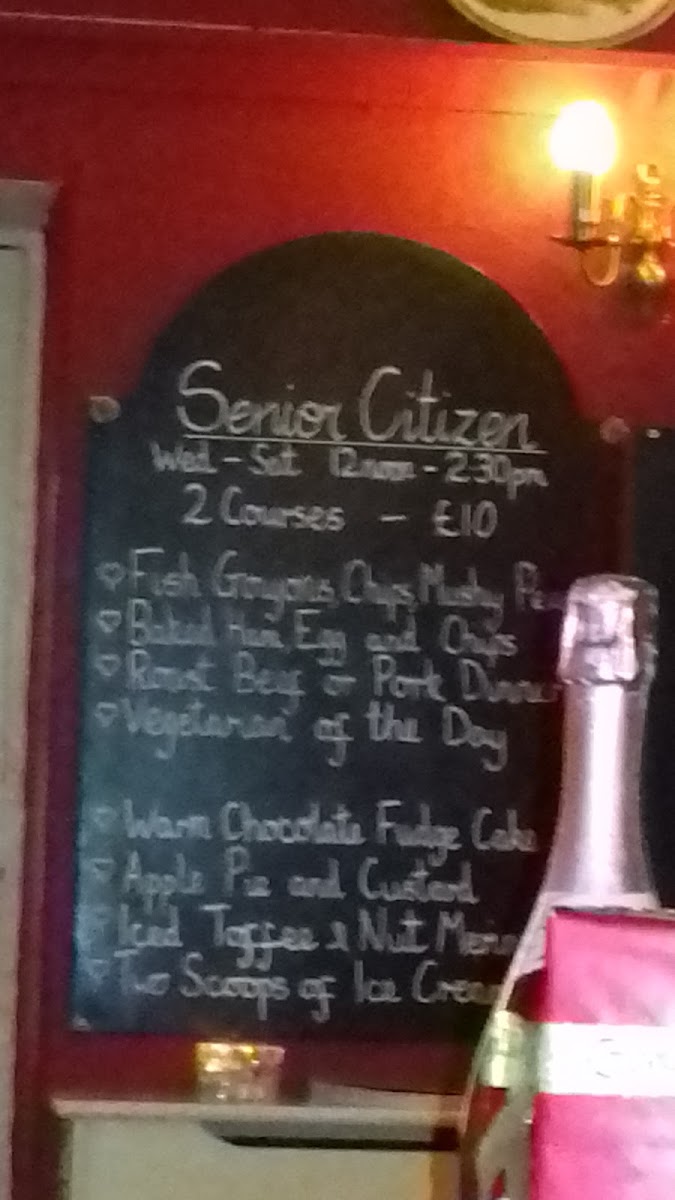 Senior Citizen
Wed - Sat 12noon - 2:30pm
2 Courses - £10
Fish Goujons, Chips, Mushy Pe
Baked Ham, Egg and Chips
Roast Beef or Pork Dinner
Vegetarian of the Day
Warm Chocolate Fudge Cake
Apple Pie and Custard
Iced Toffee & Nut Merin
Two Scoops of Ice Cream